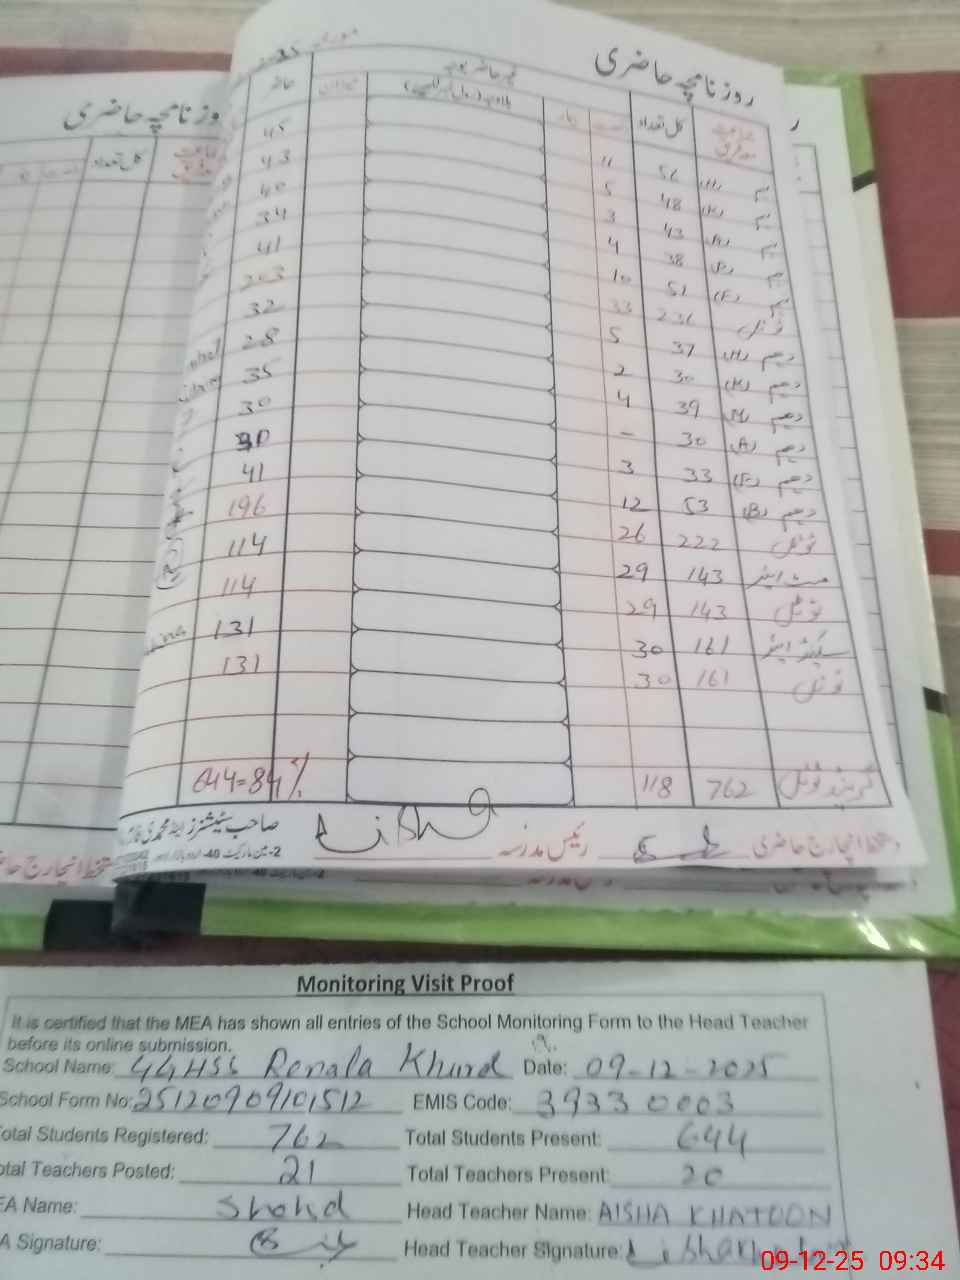 روزنامچہ حاضری
کل تعداد
حاضر
نہم (H) 56 11 45
نہم (K) 48 5 43
نہم (A) 43 3 40
نہم 38 4 34
نہم (F) 51 10 41
ٹوٹل 236 33 203
دہم (H) 37 5 32
دہم (K) 30 2 28
دہم (M) 39 4 35
دہم (A) 30 - 30
دہم (F) 33 3 30
دہم (B) 53 12 41
ٹوٹل 222 26 196
143 29 114
ٹوٹل 143 29 114
161 30 131
ٹوٹل 161 30 131
گرینڈ ٹوٹل 762 118 644=84%
دستخط انچارج حاضری رئیس مدرسہ Aisha
روزنامچہ حاضری
کل تعداد
Monitoring Visit Proof
It is certified that the MEA has shown all entries of the School Monitoring Form to the Head Teacher
before its online submission.
School Name: GGHSS Renala Khurd Date: 09-12-2025
School Form No: 25120909101512 EMIS Code: 39330003
Total Students Registered: 762 Total Students Present: 644
Total Teachers Posted: 21 Total Teachers Present: 20
EA Name: Shahd Head Teacher Name: AISHA KHATOON
A Signature: Head Teacher Signature:
09-12-25 09:34